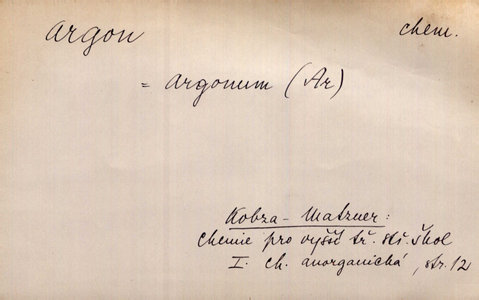 argon
chem.
= argonum (Ar)
Kobza - Matzner:
Chemie pro vyšší tř. stř. škol
I. Ch. anorganická, str. 12